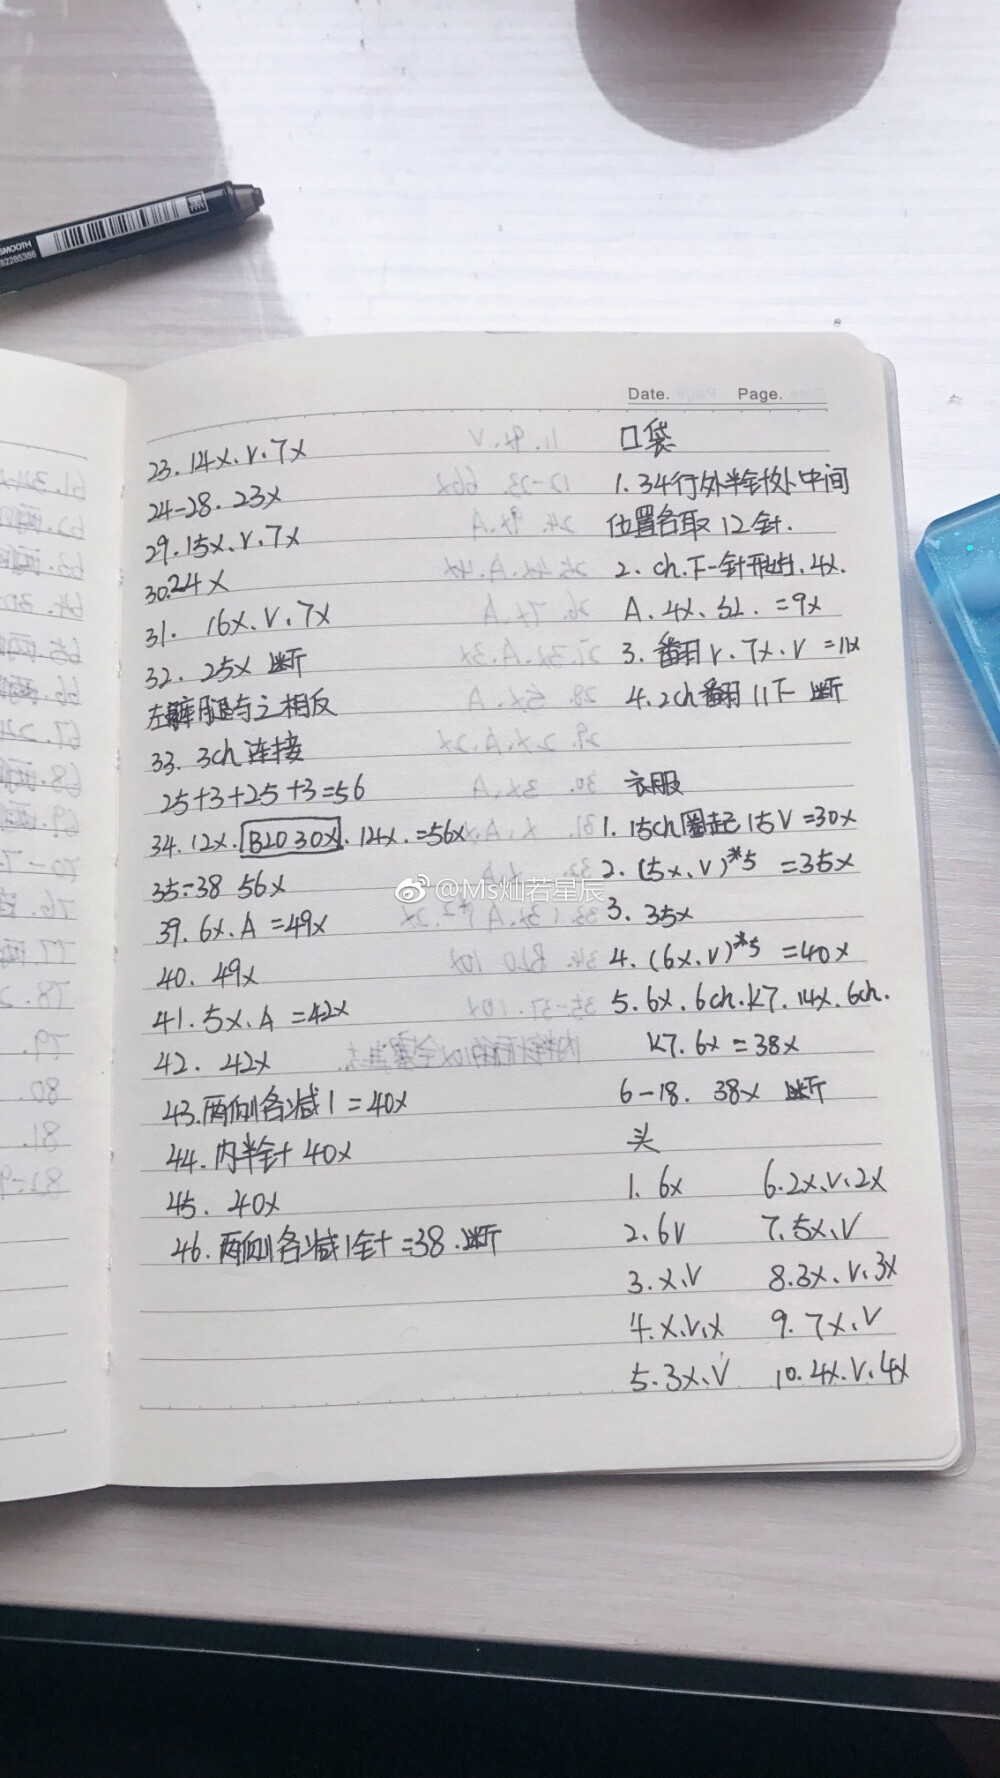 SMOOTH
Date. Page.
23. 14x. V. 7x
24-28. 23x
29. 15x. V. 7x
30. 24x
31. 16x. V. 7x
32. 25x 断
左裤腿与之相反
33. 3ch 连接
25+3+25+3=56
34. 12x. BLO 30x. 14x. =56x
35-38 56x
39. 6x. A =49x
40. 49x
41. 5x. A =42x
42. 42x
43. 两侧各减1 =40x
44. 内半针 40x
45. 40x
46. 两侧各减1针 =38. 断
口袋
1. 34行外半针处中间
位置各取12针.
2. ch. 下一针开始. 4x.
A. 4x. SL. =9x
3. 翻 V. 7x. V =11x
4. 2ch 翻 11下 断
衣服
1. 15ch 圈起 15V =30x
2. (5x. V)*5 =35x
3. 35x
4. (6x. V)*5 =40x
5. 6x. 6ch. k7. 14x. 6ch.
k7. 6x =38x
6-18. 38x 断
头
1. 6x 6. 2x. V. 2x
2. 6V 7. 5x. V
3. x. V 8. 3x. V. 3x
4. x. V. x 9. 7x. V
5. 3x. V 10. 4x. V. 4x
@Ms灿若星辰